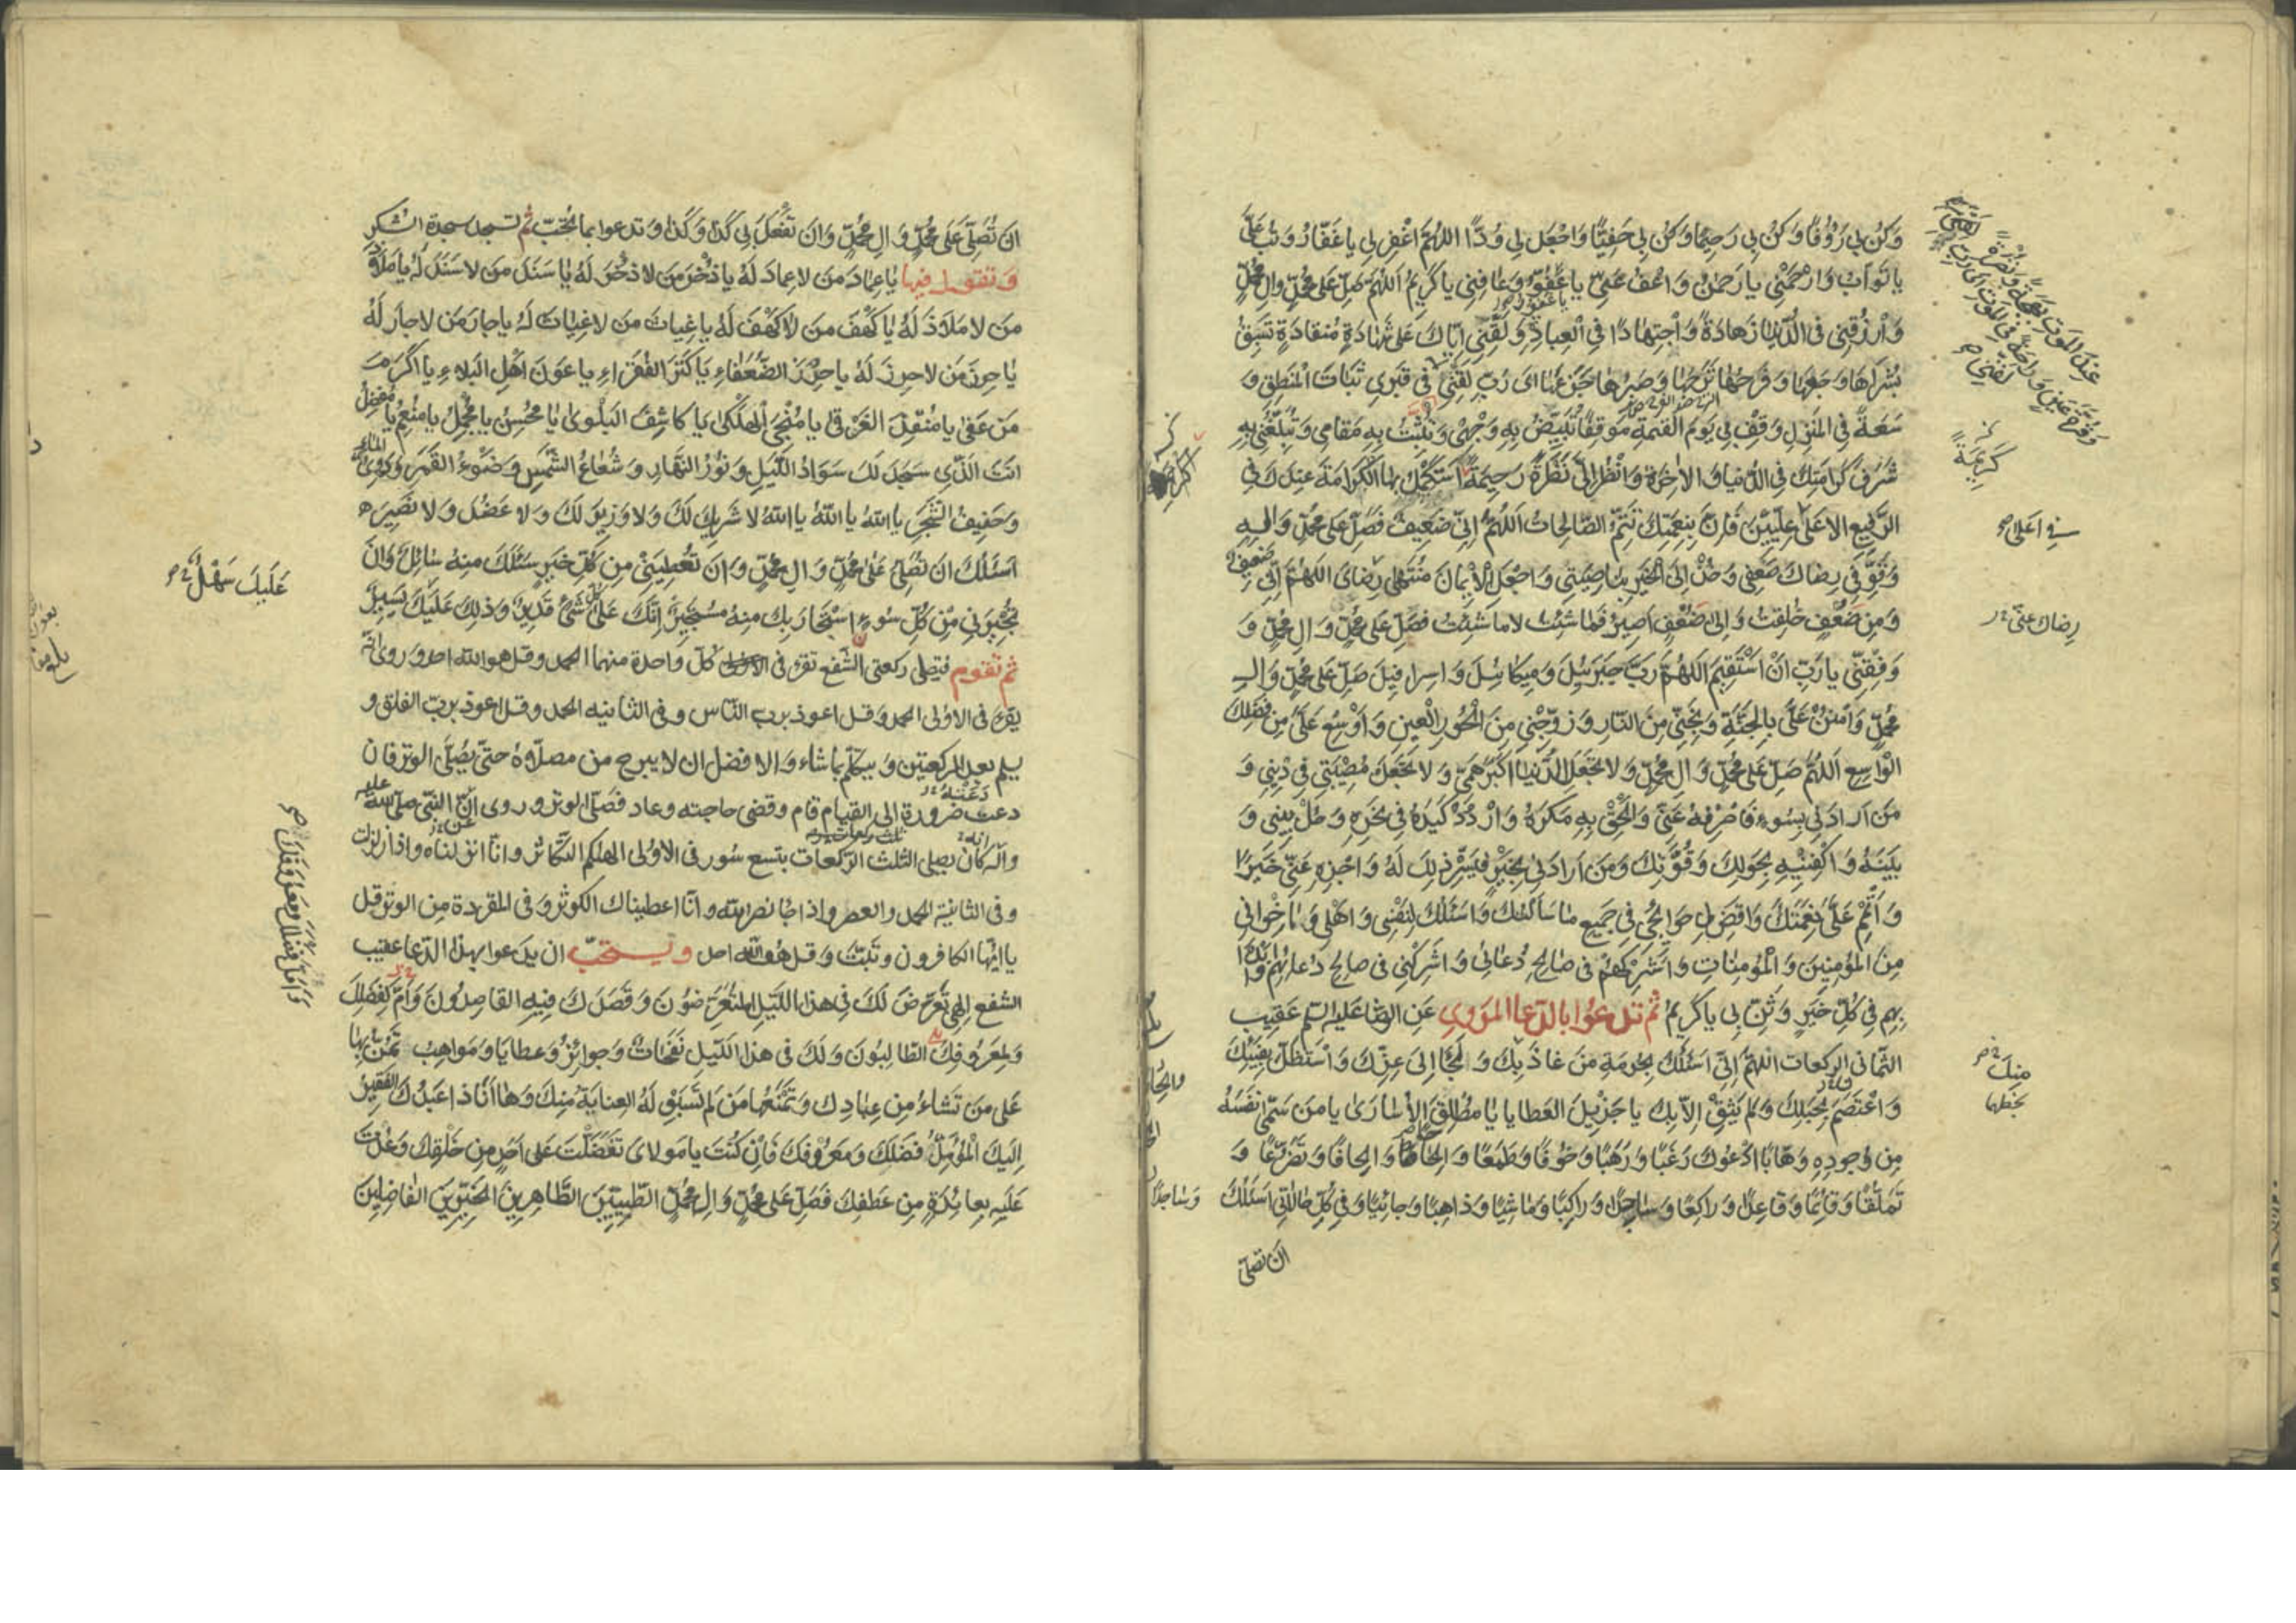 وَكُنْ بِي رَؤُفًا وَكُنْ بِي رَحِيمًا وَكُنْ بِي حَفِيًّا وَاجْعَلْ لِي وُدًّا اللهُمَّ اغْفِرْ لِي يا غَفّارُ وَتُبْ عَلَيَّ
يا تَوّابُ وَارْحَمْنِي يا رَحْمنُ وَاعْفُ عَنّي يا عَفُوُّ وَعافِنِي يا كَرِيمُ اَللهُمَّ صَلِّ عَلى مُحَمَّدٍ وَالِ مُحَمَّدٍ
وَارْزُقْنِي فِي الدُّنْيا زَهادَةً وَاجْتِهادًا فِي الْعِبادَةِ وَلَقِّنِي اِيّاكَ عَلى شَهادَةٍ مُنْقادَةٍ تَسْبِقُ
بُشْراها وَجَعَها وَفَرَحُها تَرَحَها وَصَبْرُها جَزَعَها اى رَبِّ لَقِّنِي فِي قَبْرِي ثَباتَ الْمَنْطِقِ وَ
سَعَةً فِي الْمَنْزِلِ وَقِفْ بِي يَوْمَ الْقِيمَةِ مَوْقِفًا تُبَيِّضُ بِهِ وَجْهِي وَتُثَبِّتُ بِهِ مَقامِي وَتُبَلِّغُنِي بِهِ
شَرَفَ كَرامَتِكَ فِي الدُّنْيا وَالْاخِرَةِ وَانْظُرْ اِلَيَّ نَظْرَةً رَحِيمَةً اَسْتَكْمِلُ بِهَا الْكَرامَةَ عِنْدَكَ فِي
الرَّفِيعِ الاَعْلى عِلِّيِّينَ فَاِنَّ بِنِعْمَتِكَ تَتِمُّ الصّالِحاتُ اَللهُمَّ اِنّي ضَعِيفٌ فَصَلِّ عَلى مُحَمَّدٍ وَالِهِ
وَقَوِّ فِي رِضاكَ ضَعْفِي وَخُذْ اِلَى الْخَيْرِ بِناصِيَتِي وَاجْعَلِ الْاِيْمانَ مُنْتَهى رِضاىَ اللهُمَّ اِنّي ضَعِيفٌ
وَمِنْ ضَعْفٍ خُلِقْتُ وَاِلى ضَعْفٍ اَصِيرُ فَما شِئْتَ لا ما شِئْتُ فَصَلِّ عَلى مُحَمَّدٍ وَالِ مُحَمَّدٍ وَ
وَفِّقْنِي يا رَبِّ اَنْ اَسْتَقِيمَ اَللهُمَّ رَبَّ جَبْرَئِيلَ وَمِيكائِيلَ وَاِسْرافِيلَ صَلِّ عَلى مُحَمَّدٍ وَالِ
مُحَمَّدٍ وَامْنُنْ عَلَيَّ بِالْجَنَّةِ وَنَجِّنِي مِنَ النّارِ وَزَوِّجْنِي مِنَ الْحُورِ الْعِينِ وَاَوْسِعْ عَلَيَّ مِنْ فَضْلِكَ
الْواسِعِ اَللهُمَّ صَلِّ عَلى مُحَمَّدٍ وَالِ مُحَمَّدٍ وَلا تَجْعَلِ الدُّنْيا اَكْبَرَ هَمّي وَلا تَجْعَلْ مُصِيْبَتِي فِي دِينِي وَ
مَنْ اَرادَنِي بِسُوءٍ فَاصْرِفْهُ عَنّي وَاَلْحِقْ بِهِ مَكْرَهُ وَارْدُدْ كَيْدَهُ فِي نَحْرِهِ وَحُلْ بَيْنِي وَ
بَيْنَهُ وَاكْفِنِيهِ بِحَوْلِكَ وَقُوَّتِكَ وَمَنْ اَرادَنِي بِخَيْرٍ فَيَسِّرْ ذلِكَ لَهُ وَاجْزِهِ عَنّي خَيْرًا
وَاَتْمِمْ عَلَيَّ نِعْمَتَكَ وَاقْضِ لِي حَوائِجِي فِي جَمِيعِ ما سَاَلْتُكَ وَاَسْئَلُكَ لِنَفْسِي وَاَهْلِي وَاِخْوانِي
مِنَ الْمُؤْمِنِينَ وَالْمُؤْمِناتِ وَاَشْرِكْهُمْ فِي صالِحِ دُعائِي وَاَشْرِكْنِي فِي صالِحِ دُعائِهِمْ وَابْدَأْ
بِهِمْ فِي كُلِّ خَيْرٍ وَثَنِّ بِي يا كَرِيمُ ثُمَّ تَدْعُوا بِالدُّعاءِ الْمَرْوِيِّ عَنِ الرِّضا عَلَيْهِ السّلام عَقِيبَ
الثَّمانِي الرَّكعات اللهُمَّ اِنّي اَسْئَلُكَ بِحُرْمَةِ مَنْ عاذَ بِكَ وَلَجَأَ اِلى عِزِّكَ وَاسْتَظَلَّ بِفَيْئِكَ
وَاعْتَصَمَ بِحَبْلِكَ وَلَمْ يَثِقْ اِلّا بِكَ يا جَزِيلَ الْعَطايا يا مُطْلِقَ الْاُسارى يا مَنْ سَمّى نَفْسَهُ
مِنْ وُجُودِهِ وَهّابًا اَدْعُوكَ رَغَبًا وَرَهَبًا وَخَوْفًا وَطَمَعًا وَاِلْحاحًا وَاِلْحافًا وَتَضَرُّعًا وَ
تَمَلُّقًا وَقائِمًا وَقاعِدًا وَراكِعًا وَساجِدًا وَراكِبًا وَماشِيًا وَذاهِبًا وَجائِيًا وَفِي كُلِّ حالاتِي اَسْئَلُكَ
اَنْ تُصَلِّيَ
كَرِيمَةً
فِي اَعْلى
رِضاكَ عَنّي
مِنْكَ
بِخَطِّها
وَساجِدًا
اَنْ تُصَلِّيَ عَلى مُحَمَّدٍ وَالِ مُحَمَّدٍ وَاَنْ تَفْعَلَ بِي كَذا وَكَذا وَتدعوا بما تُحِبّ ثُمَّ تسجد سجدة الشكر
وَتَقُولُ فيها يا عِمادَ مَنْ لا عِمادَ لَهُ يا ذُخْرَ مَنْ لا ذُخْرَ لَهُ يا سَنَدَ مَنْ لا سَنَدَ لَهُ يا مَلاذَ
مَنْ لا مَلاذَ لَهُ يا كَهْفَ مَنْ لا كَهْفَ لَهُ يا غِياثَ مَنْ لا غِياثَ لَهُ يا جارَ مَنْ لا جارَ لَهُ
يا حِرْزَ مَنْ لا حِرْزَ لَهُ يا حِرْزَ الضُّعَفاءِ يا كَنْزَ الْفُقَراءِ يا عَوْنَ اَهْلِ الْبَلاءِ يا اَكْرَمَ
مَنْ عَفى يا مُنْقِذَ الْغَرْقى يا مُنْجِيَ الْهَلْكى يا كاشِفَ الْبَلْوى يا مُحْسِنُ يا مُجْمِلُ يا مُنْعِمُ يا مُفْضِلُ
اَنْتَ الَّذِي سَجَدَ لَكَ سَوادُ اللَّيْلِ وَنُورُ النَّهارِ وَشُعاعُ الشَّمْسِ وَضَوْءُ الْقَمَرِ وَدَوِيُّ الْماءِ
وَحَفِيفُ الشَّجَرِ يا اَللهُ يا اَللهُ يا اَللهُ لا شَرِيكَ لَكَ وَلا وَزِيرَ لَكَ وَلا عَضُدَ وَلا نَصِيرَ
اَسْئَلُكَ اَنْ تُصَلِّيَ عَلى مُحَمَّدٍ وَالِ مُحَمَّدٍ وَاَنْ تُعْطِيَنِي مِنْ كُلِّ خَيْرٍ سَئَلَكَ مِنْهُ سائِلٌ وَاَنْ
تُجِيرَنِي مِنْ كُلِّ سُوءٍ اسْتَجارَ بِكَ مِنْهُ مُسْتَجِيرٌ اِنَّكَ عَلى كُلِّ شَيْءٍ قَدِيرٌ وَذلِكَ عَلَيْكَ يَسِيرٌ
ثمّ تقوم فتصلى ركعتى الشفع تقرء فى كل واحدة منهما الحمد وقل هو الله احد وروى انّه
يقرء فى الاولى الحمد وقل اعوذ برب النّاس وفى الثانيه الحمد وقل اعوذ بربّ الفلق و
يسلم بعد الركعتين ويتكلّم بما شاء والافضل ان لا يبرح من مصلّاه حتى يصلّى الوتر فان
دعت ضرورة الى القيام قام وقضى حاجته وعاد فصلّى الوتر وروى انّ النّبىّ صلى الله عليه
وآله كان يصلى الثلث الرّكعات بتسع سُور فى الاولى الهيكم التكاثر وانّا انزلناه واذا زلزلت
وفى الثانية الحمد والعصر واذا جاء نصر الله وانّا اعطيناك الكوثر وفى المفردة من الوتر قل
يا ايها الكافرون وتبّت وقل هو الله احد ويستحبّ ان يدعوا بهذا الدّعا عقيب
الشفع اِلهِي تَعَرَّضَ لَكَ فِي هذا اللَّيْلِ الْمُتَعَرِّضُونَ وَقَصَدَكَ فِيهِ الْقاصِدُونَ وَاَمَّلَ فَضْلَكَ
وَمَعْرُوفَكَ الطّالِبُونَ وَلَكَ فِي هذَا اللَّيْلِ نَفَحاتٌ وَجَوائِزُ وَعَطايا وَمَواهِبُ تَمُنُّ بِها
عَلى مَنْ تَشاءُ مِنْ عِبادِكَ وَتَمْنَعُها مَنْ لَمْ تَسْبِقْ لَهُ الْعِنايَةُ مِنْكَ وَها اَنَا ذا عَبْدُكَ الْفَقِيرُ
اِلَيْكَ الْمُؤَمِّلُ فَضْلَكَ وَمَعْرُوفَكَ فَاِنْ كُنْتَ يا مَوْلاىَ تَفَضَّلْتَ عَلى اَحَدٍ مِنْ خَلْقِكَ وَعُدْتَ
عَلَيْهِ بِعائِدَةٍ مِنْ عَطْفِكَ فَصَلِّ عَلى مُحَمَّدٍ وَالِ مُحَمَّدٍ الطَّيِّبِينَ الطّاهِرِينَ الْخَيِّرِينَ الْفاضِلِينَ
عَلَيْكَ سَهْلٌ